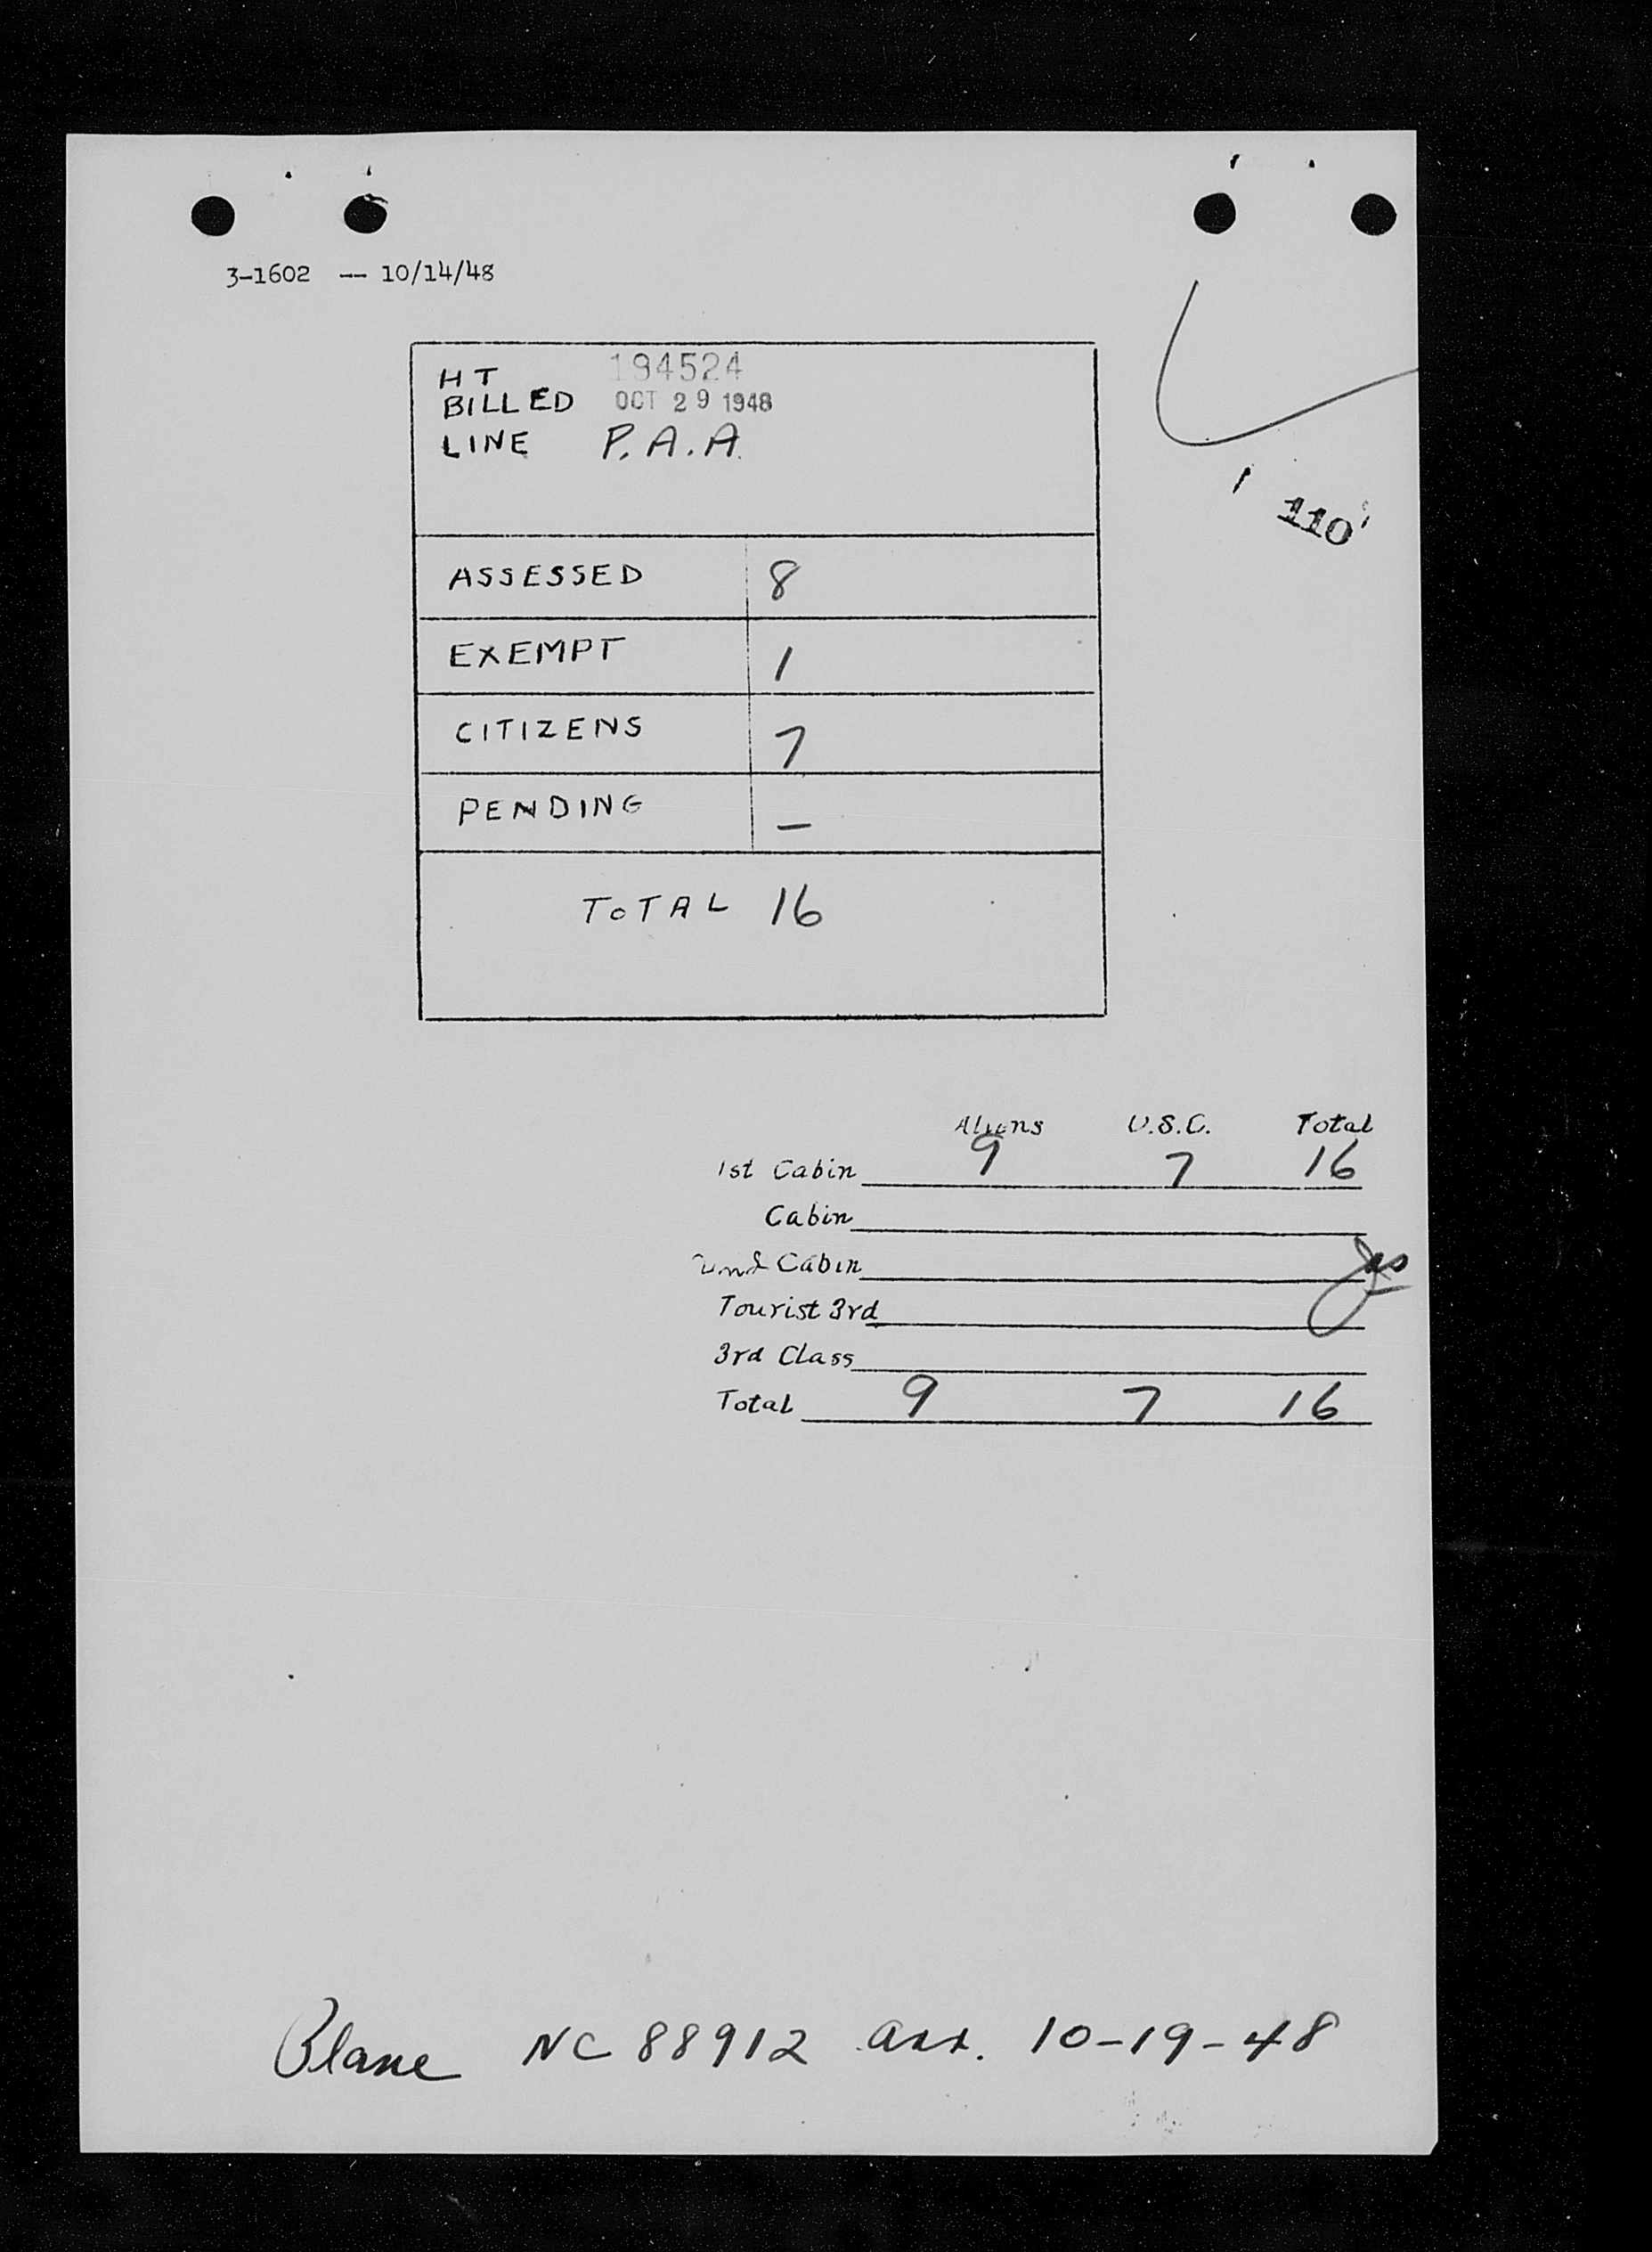 3-1602 -- 10/14/48
HT 194524
BILLED OCT 29 1948
LINE P.A.A.
110
ASSESSED 8
EXEMPT 1
CITIZENS 7
PENDING —
TOTAL 16
Aliens U.S.C. Total
1st Cabin 9 7 16
Cabin
2nd Cabin
Tourist 3rd
3rd Class
Total 9 7 16
NC 88912 arr. 10-19-48